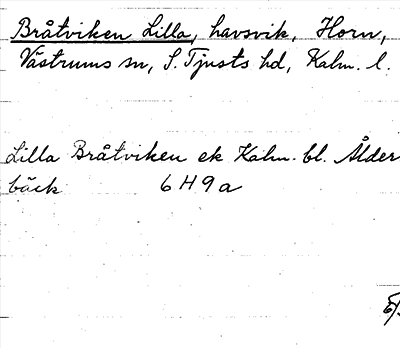 Bråtviken Lilla, havsvik, Horn,
Västrums sn, S. Tjusts hd, Kalm. l.
Lilla Bråtviken ek Kalm. bl. Ålder
bäck 6H9a